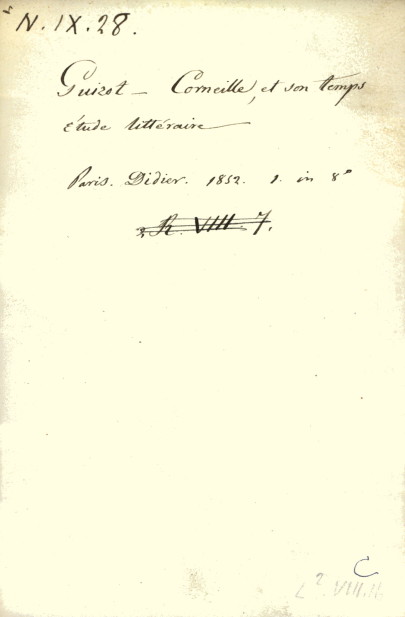 N. IX. 28.
Guizot — Corneille, et son temps
étude littéraire
Paris. Didier. 1852. 1. in 8°
R. VIII. 7.
C